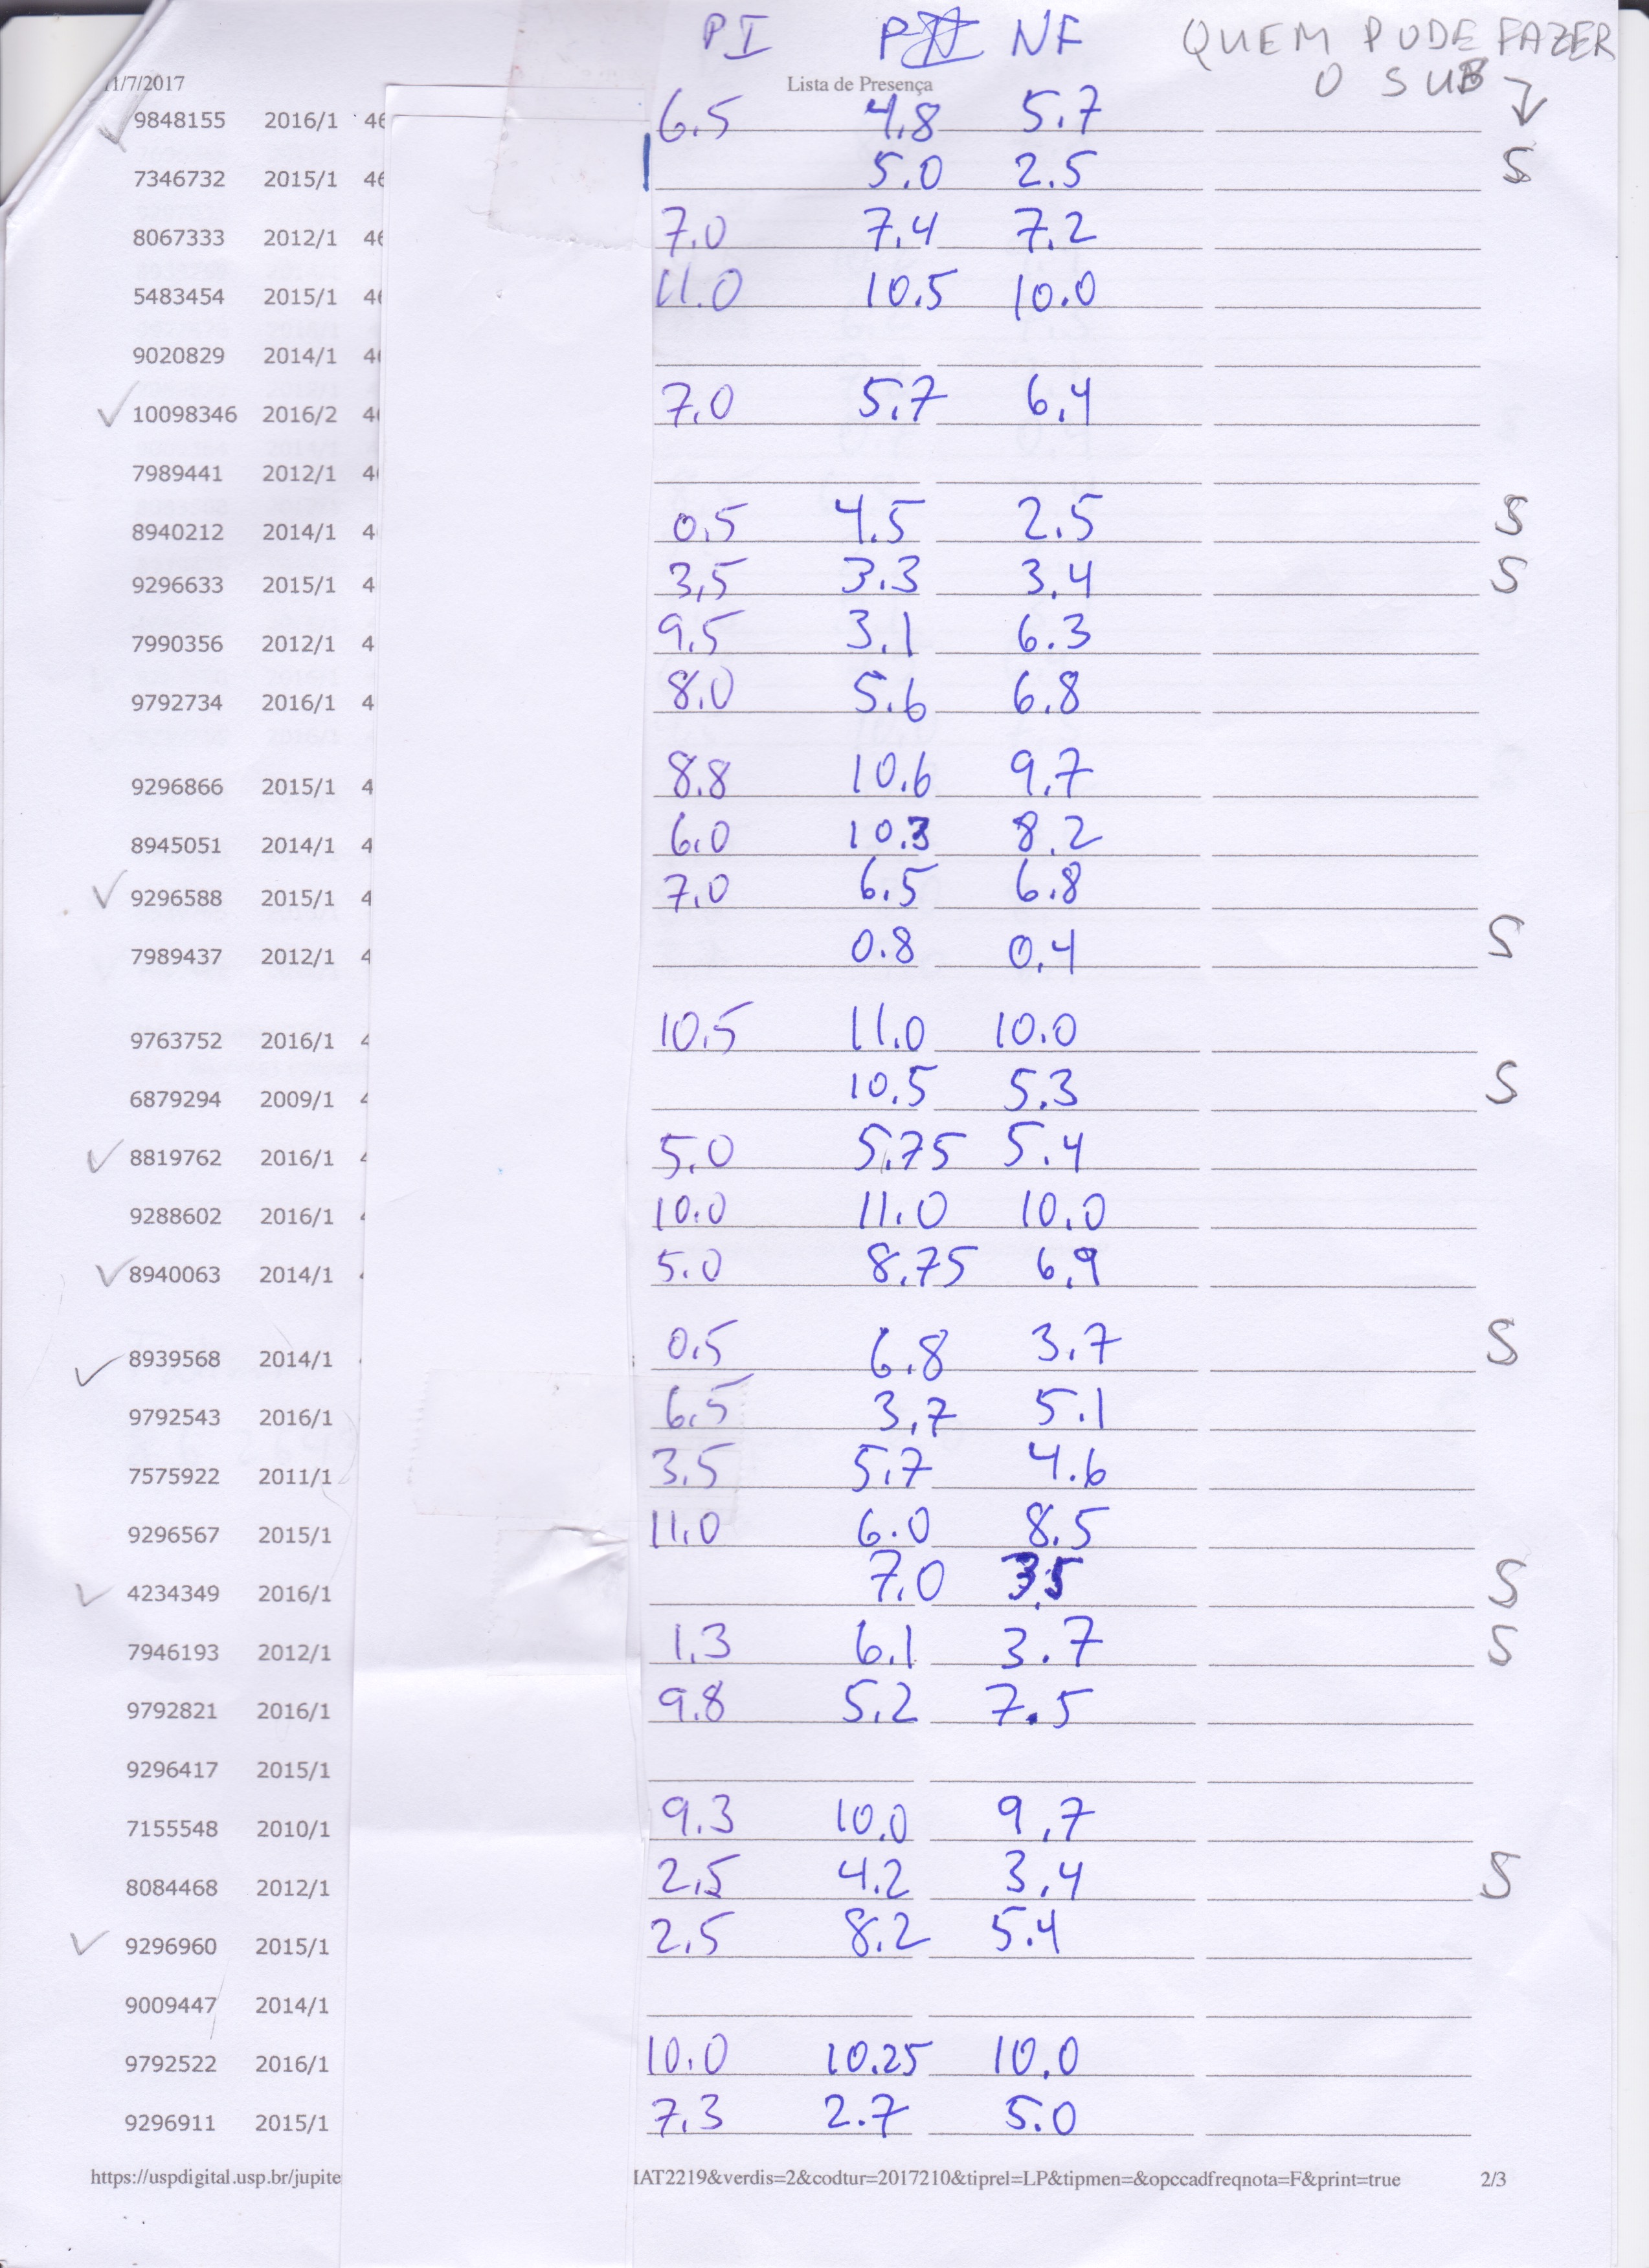 PI PII NF QUEM PODE FAZER
1/7/2017 Lista de Presença O SUB
9848155 2016/1 46 6.5 4.8 5.7
7346732 2015/1 46 5.0 2.5 S
8067333 2012/1 46 7.0 7.4 7.2
5483454 2015/1 46 11.0 10.5 10.0
9020829 2014/1 46
10098346 2016/2 46 7.0 5.7 6.4
7989441 2012/1 46
8940212 2014/1 4 0.5 4.5 2.5 S
9296633 2015/1 4 3,5 3.3 3.4 S
7990356 2012/1 4 9.5 3.1 6.3
9792734 2016/1 4 8.0 5.6 6.8
9296866 2015/1 4 8.8 10.6 9.7
8945051 2014/1 4 6.0 10.3 8.2
9296588 2015/1 4 7.0 6.5 6.8
7989437 2012/1 4 0.8 0.4 S
9763752 2016/1 4 10.5 11.0 10.0
6879294 2009/1 4 10.5 5.3 S
8819762 2016/1 4 5.0 5.75 5.4
9288602 2016/1 10.0 11.0 10.0
8940063 2014/1 5.0 8.75 6.9
8939568 2014/1 0.5 6.8 3.7 S
9792543 2016/1 6.5 3,7 5.1
7575922 2011/1 3.5 5.7 4.6
9296567 2015/1 11.0 6.0 8.5
4234349 2016/1 7.0 3.5 S
7946193 2012/1 1.3 6.1 3.7 S
9792821 2016/1 9.8 5.2 7.5
9296417 2015/1
7155548 2010/1 9.3 10.0 9.7
8084468 2012/1 2.5 4.2 3.4 S
9296960 2015/1 2.5 8.2 5.4
9009447 2014/1
9792522 2016/1 10.0 10.25 10.0
9296911 2015/1 7.3 2.7 5.0
https://uspdigital.usp.br/jupite IAT2219&verdis=2&codtur=2017210&tiprel=LP&tipmen=&opccadfreqnota=F&print=true 2/3